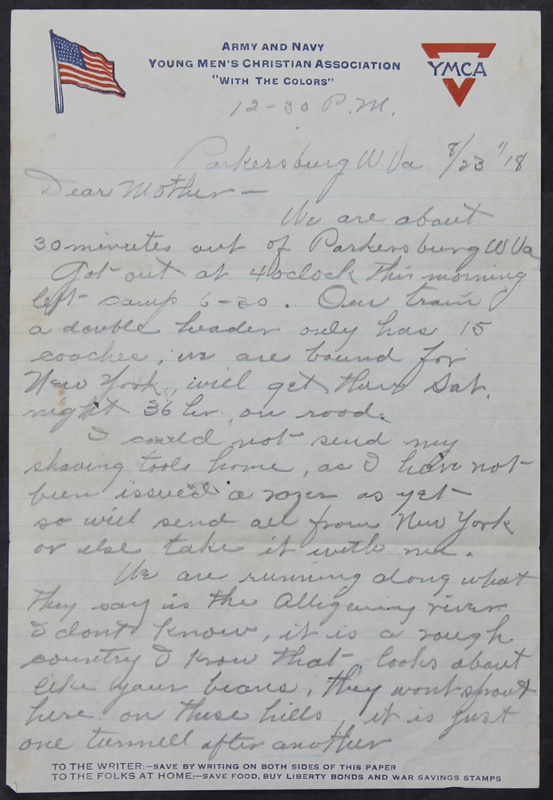 ARMY AND NAVY
YOUNG MEN'S CHRISTIAN ASSOCIATION
"WITH THE COLORS"
YMCA
12-30 P.M.
Parkersburg W Va 8/23" 18
Dear Mother —
We are about
30 minutes out of Parkersburg W Va
Got out at 4 oclock this morning
left camp 6-30. Our train
a double header only has 15
coaches, we are bound for
New York, will get there Sat.
night 36 hr. on road.
I could not send my
shaving tools home, as I have not
been issued a razer as yet
so will send all from New York
or else take it with me.
We are running along what
they say is the Allegeniny river
I dont know, it is a rough
country I know that looks about
like your beans, they wont sprout
here on these hills, it is just
one tunnell after another
TO THE WRITER:—SAVE BY WRITING ON BOTH SIDES OF THIS PAPER
TO THE FOLKS AT HOME:—SAVE FOOD, BUY LIBERTY BONDS AND WAR SAVINGS STAMPS